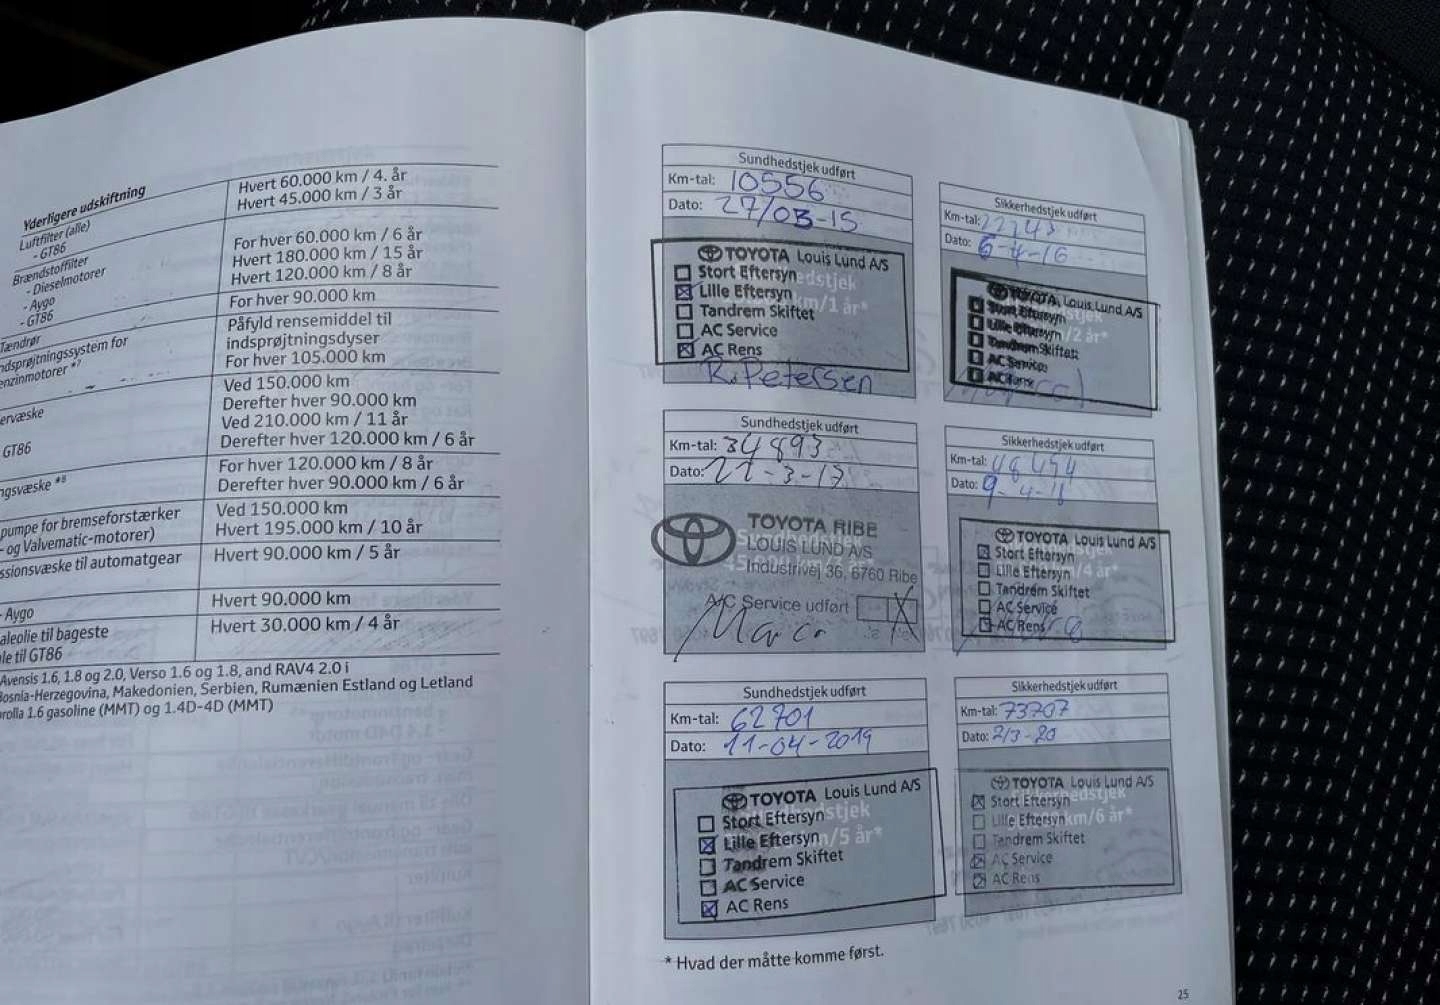 Yderligere udskiftning
Luftfilter (alle)
- GT86
Hvert 60.000 km / 4. år
Hvert 45.000 km / 3 år
Brændstoffilter
- Dieselmotorer
- Aygo
- GT86
For hver 60.000 km / 6 år
Hvert 180.000 km / 15 år
Hvert 120.000 km / 8 år
Tændrør
For hver 90.000 km
ndsprøjtningssystem for
enzinmotorer *7
Påfyld rensemiddel til
indsprøjtningsdyser
For hver 105.000 km
ervæske
GT86
Ved 150.000 km
Derefter hver 90.000 km
Ved 210.000 km / 11 år
Derefter hver 120.000 km / 6 år
ngsvæske *8
For hver 120.000 km / 8 år
Derefter hver 90.000 km / 6 år
pumpe for bremseforstærker
- og Valvematic-motorer)
Ved 150.000 km
Hvert 195.000 km / 10 år
ssionsvæske til automatgear
Hvert 90.000 km / 5 år
- Aygo
Hvert 90.000 km
aleolie til bageste
le til GT86
Hvert 30.000 km / 4 år
Avensis 1.6, 1.8 og 2.0, Verso 1.6 og 1.8, and RAV4 2.0 i
Bosnia-Herzegovina, Makedonien, Serbien, Rumænien Estland og Letland
rolla 1.6 gasoline (MMT) og 1.4D-4D (MMT)
Sundhedstjek udført
Km-tal: 10556
Dato: 27/03-15
TOYOTA Louis Lund A/S
Stort Eftersyn
Lille Eftersyn
Tandrem Skiftet
AC Service
AC Rens
km/1 år*
R. Petersen
Sikkerhedstjek udført
Km-tal: 22743
Dato: 6-4-16
TOYOTA Louis Lund A/S
Stort Eftersyn
Lille Eftersyn
Tandrem Skiftet
AC Service
AC Rens
/2 år*
Sundhedstjek udført
Km-tal: 34893
Dato: 22-3-17
TOYOTA RIBE
LOUIS LUND A/S
Industrivej 36, 6760 Ribe
A/C Service udført
Sikkerhedstjek udført
Km-tal: 48454
Dato: 9-4-18
TOYOTA Louis Lund A/S
Stort Eftersyn
Lille Eftersyn
Tandrem Skiftet
AC Service
AC Rens
km/4 år*
Sundhedstjek udført
Km-tal: 62701
Dato: 11-04-2019
TOYOTA Louis Lund A/S
Stort Eftersyn
Lille Eftersyn
Tandrem Skiftet
AC Service
AC Rens
km/5 år*
Sikkerhedstjek udført
Km-tal: 73707
Dato: 2/3-20
TOYOTA Louis Lund A/S
Stort Eftersyn
Lille Eftersyn
Tandrem Skiftet
AC Service
AC Rens
km/6 år*
* Hvad der måtte komme først.
25